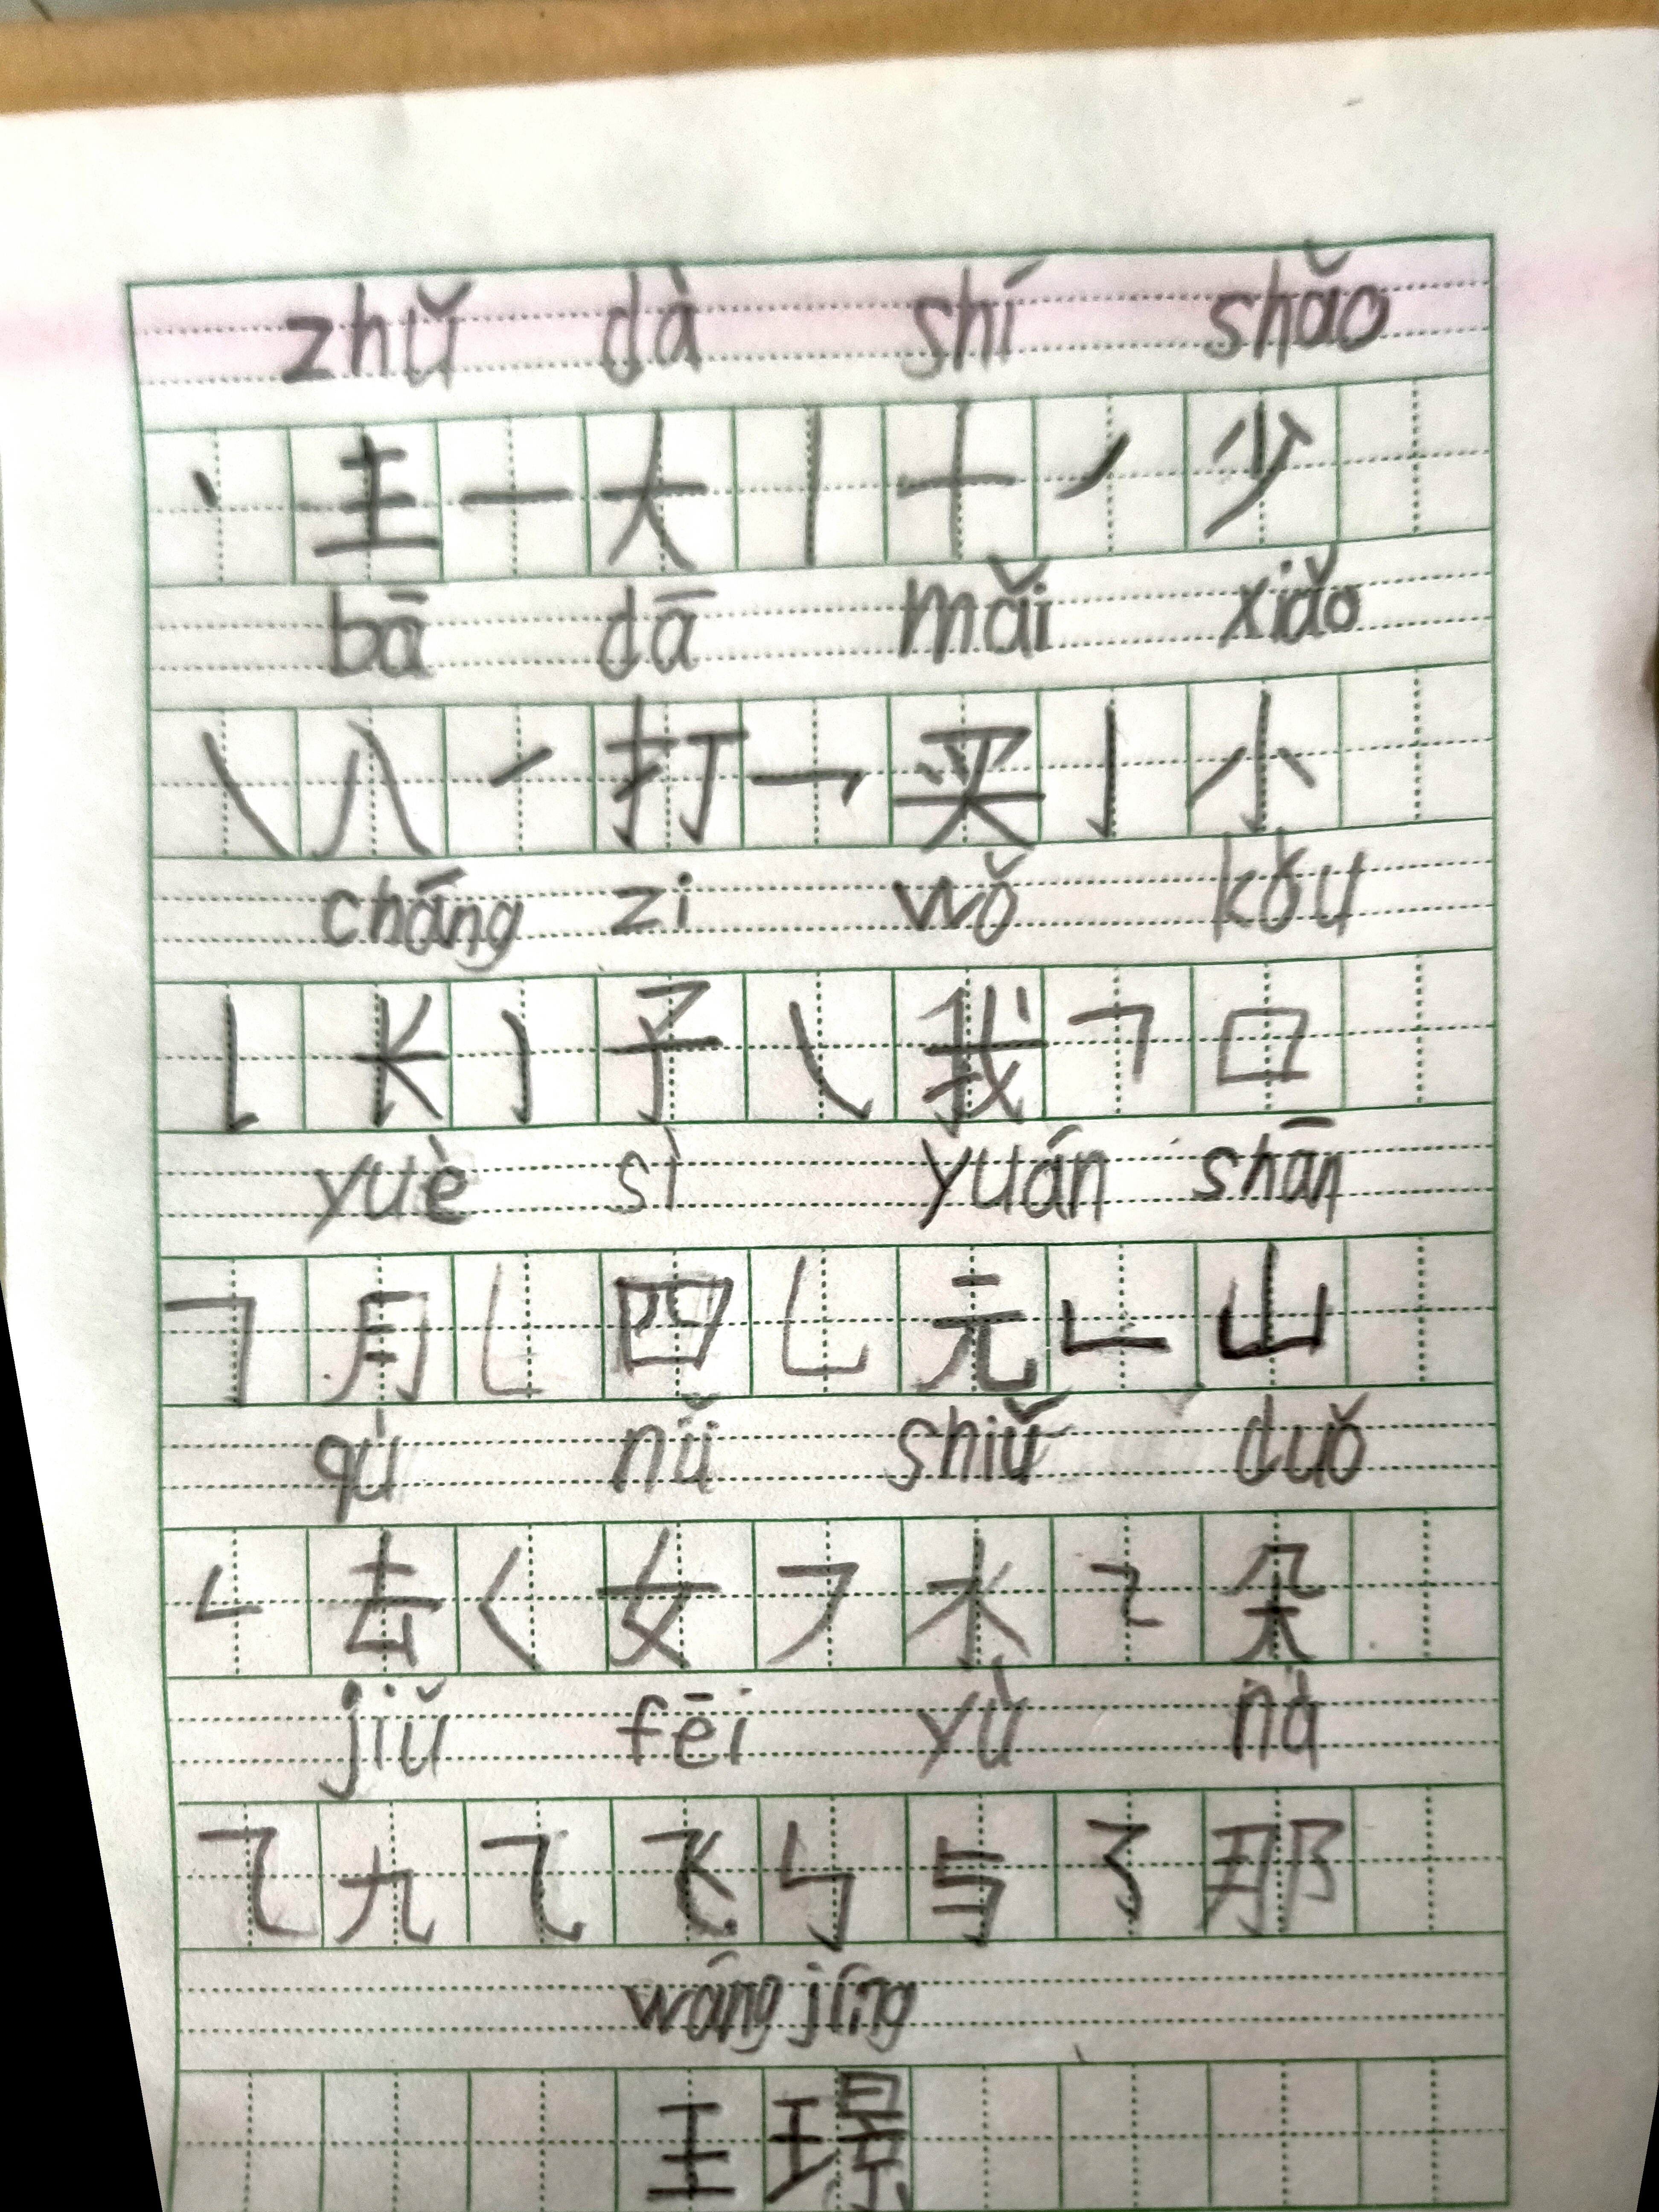 zhǔ dà shí shǎo
丶 主 一 大 丨 十 ㇒ 少
bā dā mǎi xiǎo
㇏ 八 ㇀ 打 乛 买 亅 小
cháng zi wǒ kǒu
𠄌 长 ㇁ 子 ㇂ 我 𠃍 口
yuè sì yuán shān
𠃌 月 ㇄ 四 乚 元 𠃊 山
qù nǚ shiǔ duǒ
𠃋 去 ㇛ 女 ㇇ 水 ㇍ 朵
jiǔ fēi yù nà
㇈ 九 ⺄ 飞 ㇉ 与 ㇌ 那
wáng jíng
王 璟